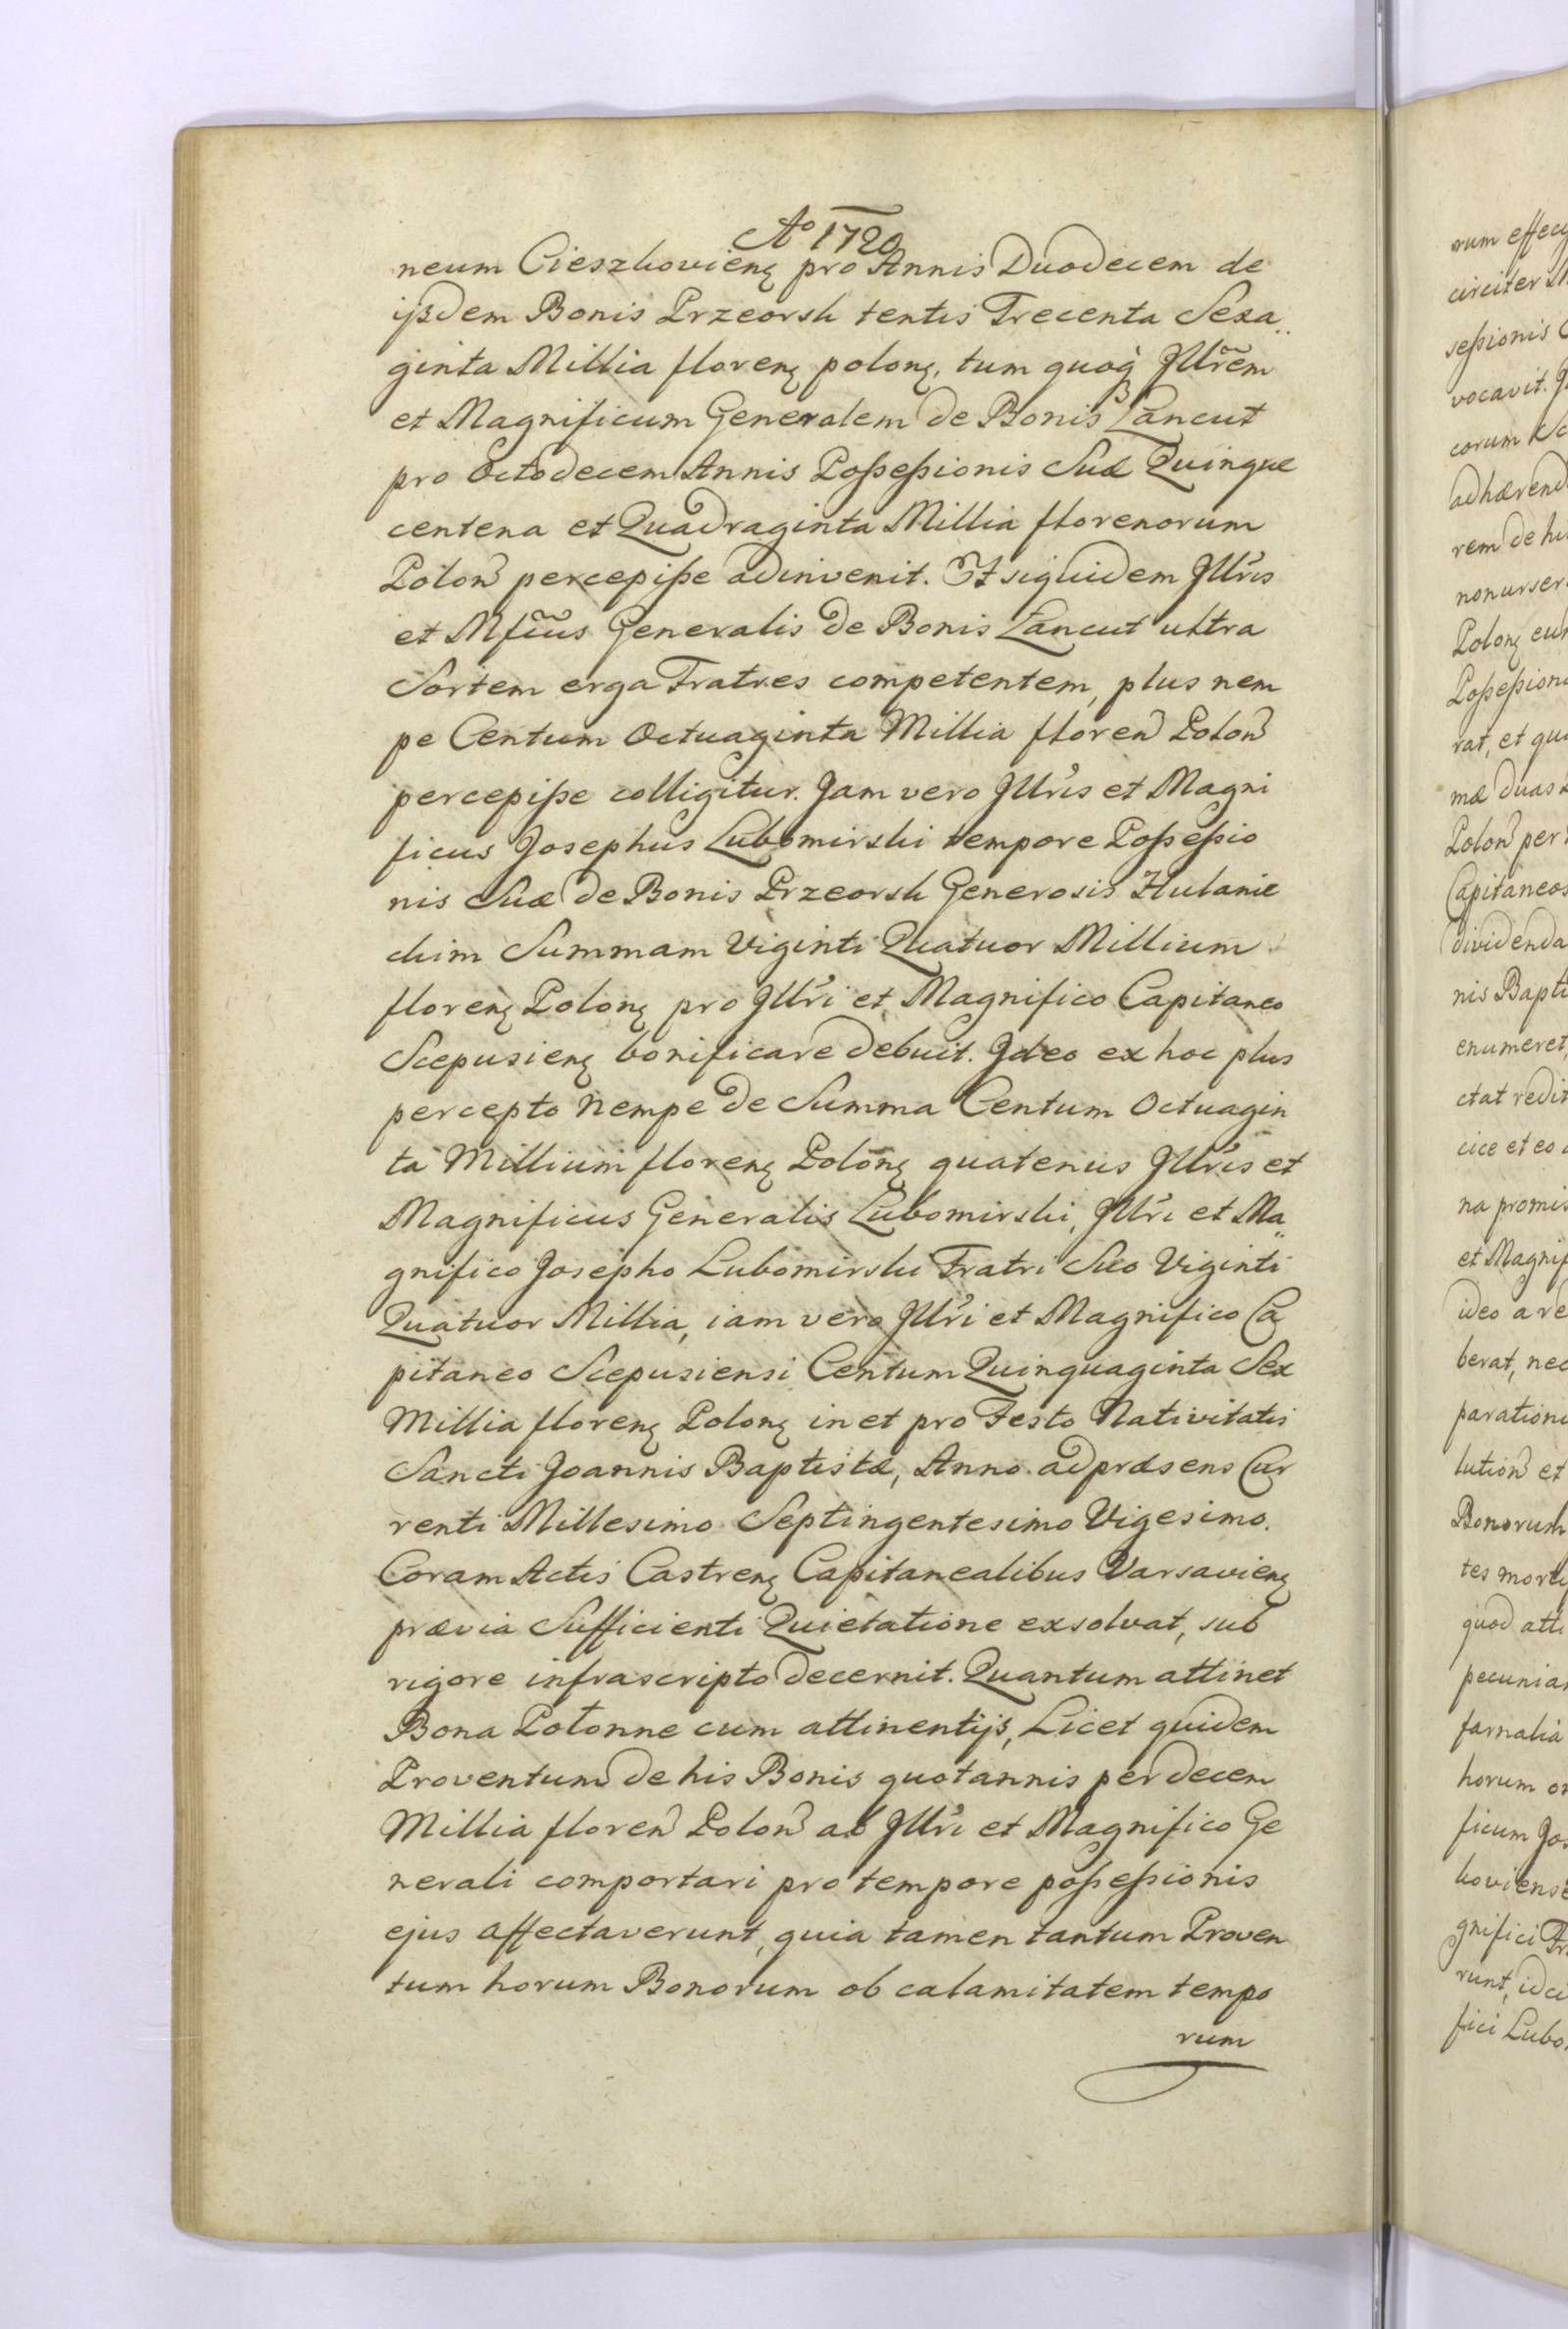 Aº 1720
neum Cieszkovienę pro Annis Duodecem de
ijsdem Bonis Przeorsk tentis Trecenta Sexa„
ginta Millia florenę polonę, tum quoqꝫ Jllr̃em
et Magnificum Generalem de Bonis Łancut
pro Octodecem Annis Poßeßionis Suæ Quingue
centena et Quadraginta Millia florenorum
Polon̄ percepiße adinvenit. Et siquidem Jllris
et Mfic̃us Generalis de Bonis Łancut ultra
Sortem erga Fratres competentem, plus nem
pe Centum Octuaginta Millia floren̄ Polon̄
percepiße colligitur. Jam vero Jllris et Magni
ficus Josephus Lubomirski tempore Poßeßio
nis Suæ de Bonis Przeorsk Generosis Hulanic
chim Summam Viginti Quatuor Millium
florenę Polonę pro Jllri et Magnifico Capitaneo
Scepusienę bonificare debuit. Jdeo ex hoc plus
percepto Nempe de Summa Centum Octuagin
ta Millium florenę Polonę quatenus Jllris et
Magnificus Generalis Lubomirski, Jllri et Ma„
gnifico Josepho Lubomirski Fratri Suo Viginti
Quatuor Millia, iam vero Jllri et Magnifico Ca
pitaneo Scepusiensi Centum Quinquaginta Sex
Millia florenę Polonę in et pro Festo Nativitatis
Sancti Joannis Baptistæ, Anno ad præsens Cur
renti Millesimo Septingentesimo Vigesimo.
Coram Actis Castrenę Capitanealibus Varsavienę
prævia Sufficienti Quietatione exsolvat, sub
rigore infrascripto decernit. Quantum attinet
Bona Połonne cum attinentijs, Licet quidem
Proventum de his Bonis quotannis per decem
Millia floren̄ Polon̄ ab Jllri et Magnifico Ge
nerali comportari pro tempore poßeßionis
ejus affectaverunt, quia tamen tantum Proven
tum horum Bonorum ob calamitatem tempo
rum
rum effec
circiter
seßionis
vocavit.
corum
adhærend
rem de
Polonę
Poßeßion
rat, et
mæ duas
Polon̄ per
Capitaneos
dividenda
nis Bapti
enumeret
ctat redit
cice et eo
na promis
et Magnif
ideo a
berat, nec
paration
lution̄ et
Bonorum
tes
quod atti
pecunia
farnalia
horum
ficum Jo
koviens
gnifici
runt,
fici Lubo